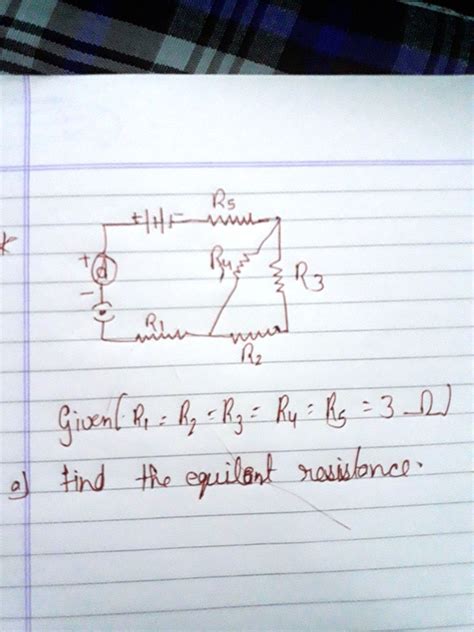 R5
+ -
+
d
R4
R3
-
R1
R2
Given(· R1 = R2 = R3 = R4 = R5 = 3 Ω)
a) find the equilent resistance.